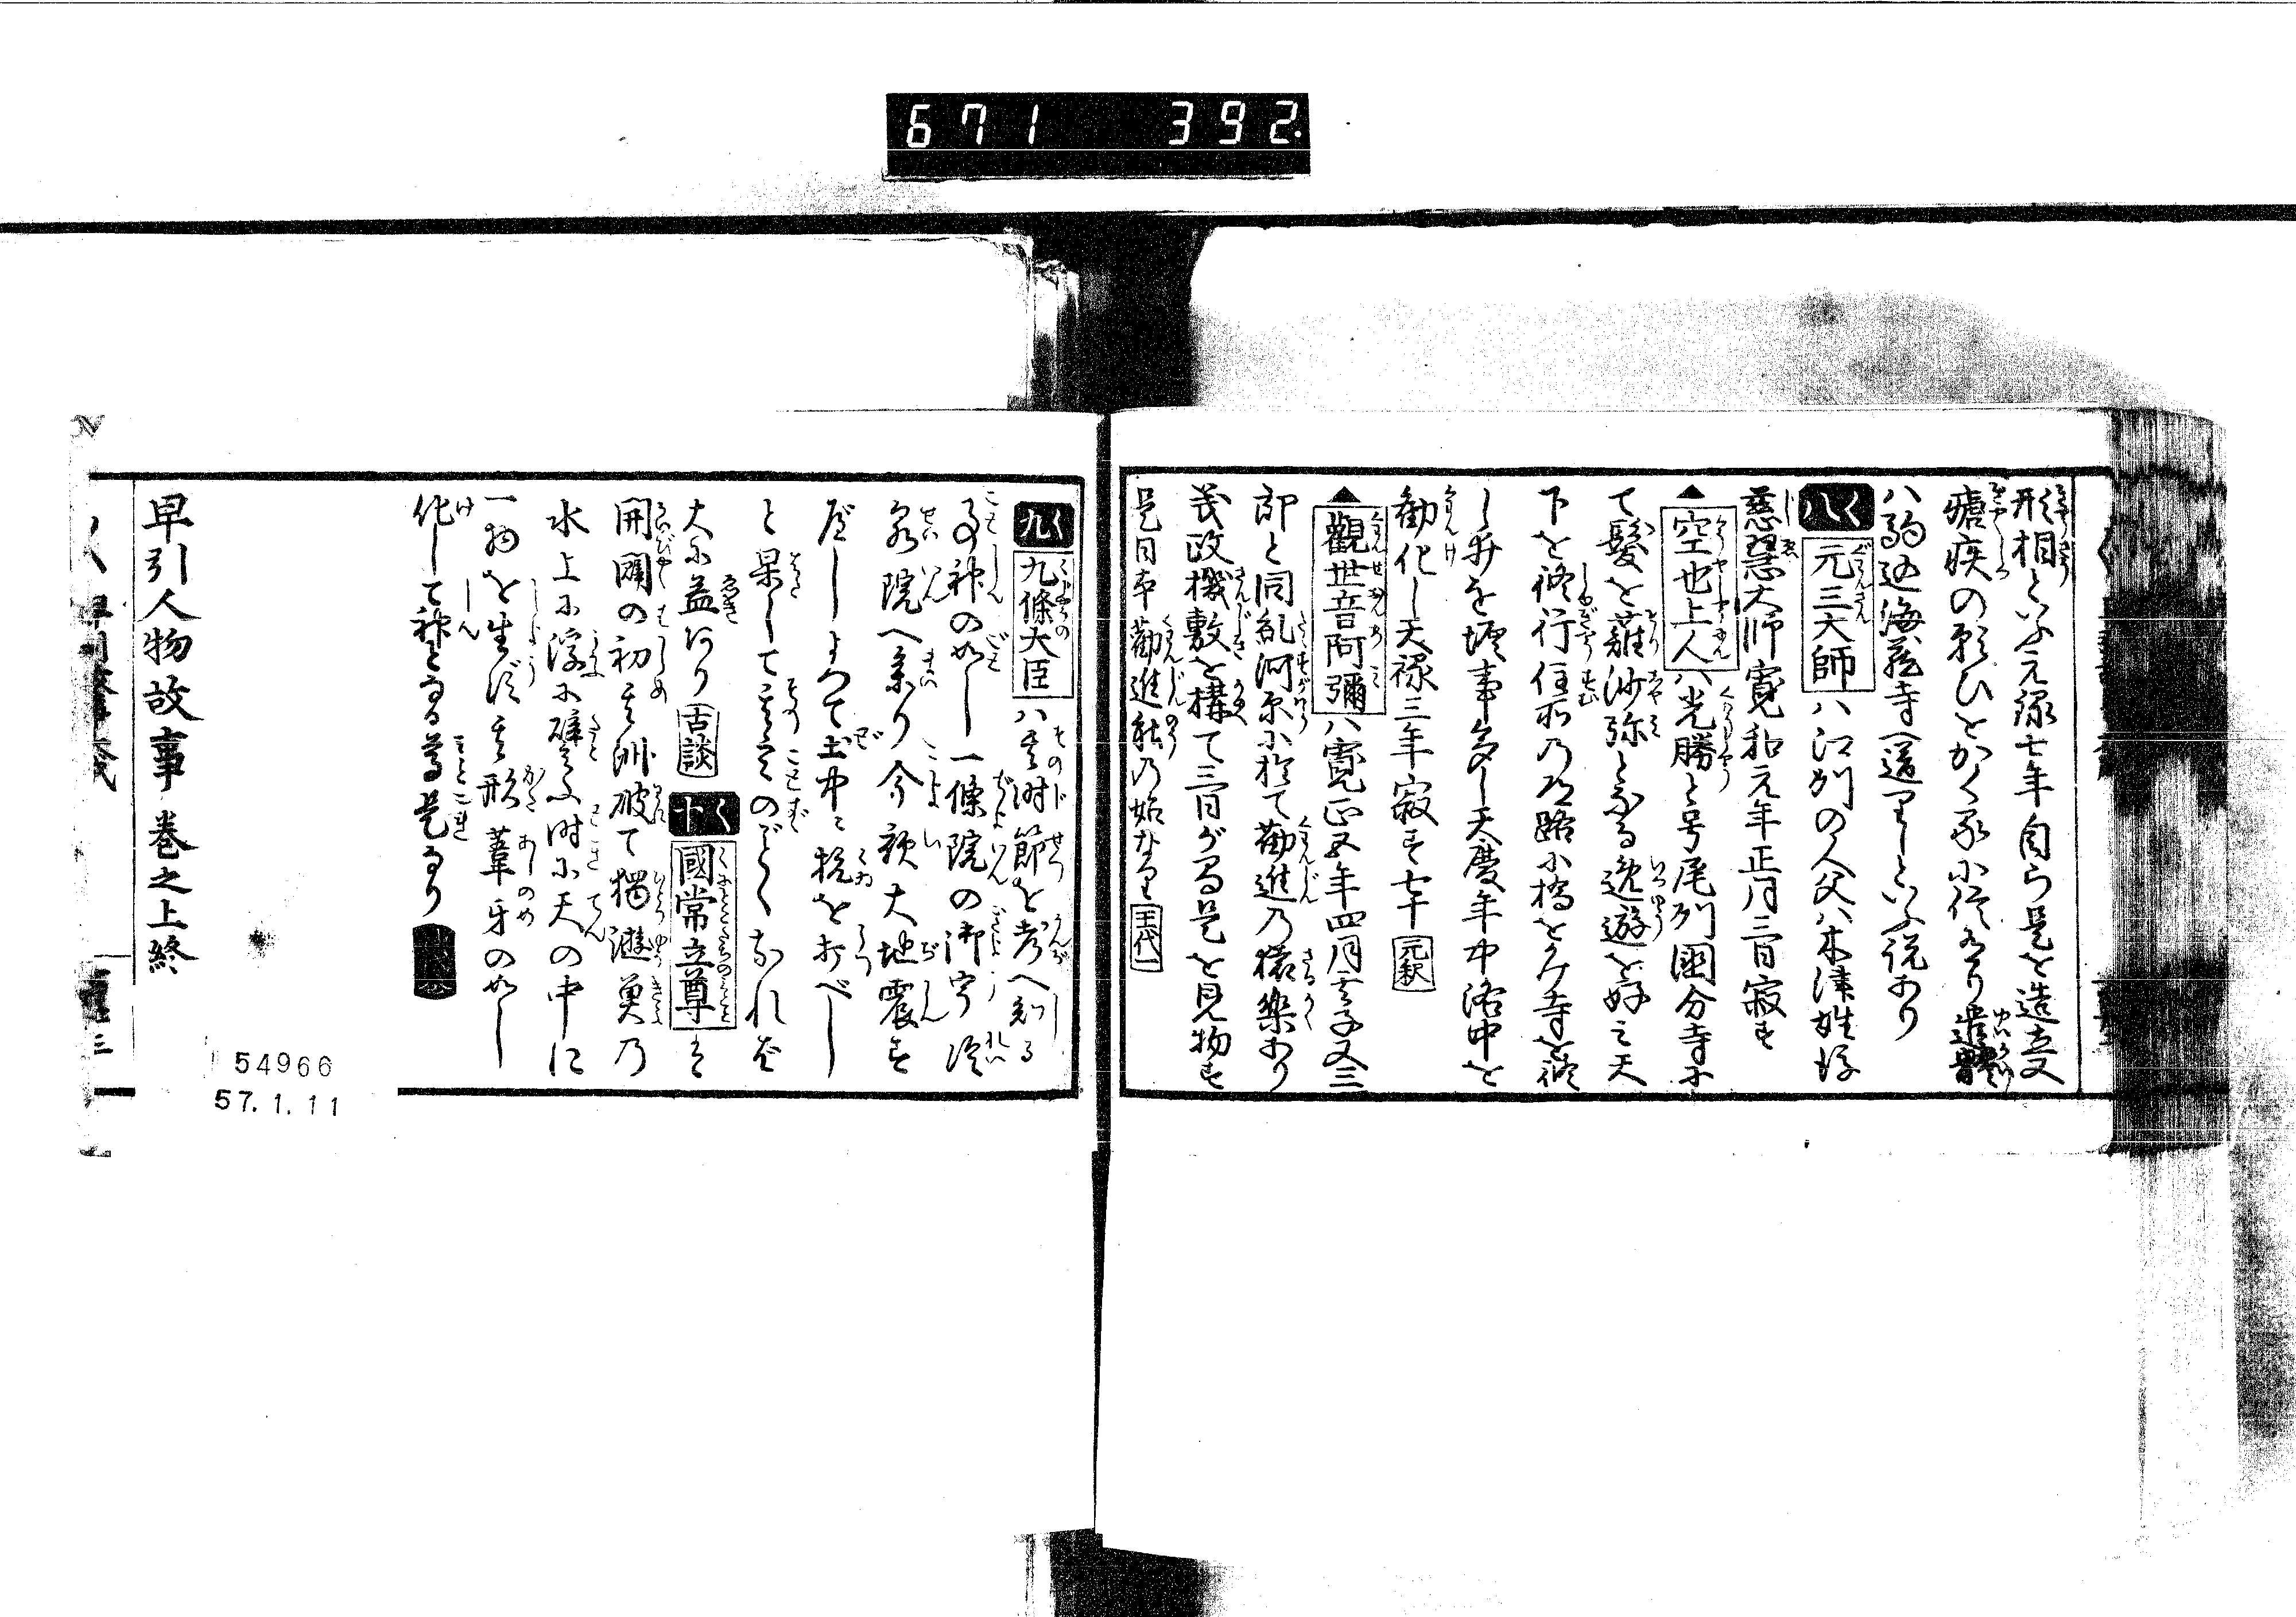 671 392.
形相といふ元禄七年自ら是を造立又
瘧疾の類ひをかく永小信あり遺體
八駒込海蔵寺へ送りしといふ説あり
く八 元三大師 ハ江州の人父ハ木津姓
慈慧大師寛和元年正月三日寂す
▲空也上人 ハ光勝と号尾州國分寺に
て髪を薙沙弥となる逸遊を好ミ天
下を修行住所乃道路に橋をかけ寺を修
し井を堀事多し天慶年中洛中を
勧化し天禄三年寂す七十 元釈
▲觀世音阿彌 ハ寛正五年四月 又三
郎と同糺河原に於て勧進乃猿樂あり
義政機敷を構て三日が間是を見物す
是日本勸進能乃始なり 王代
く九 九條大臣 ハ其時節を考へ知る
事神の如し一條院の御宇冷
泉院へ参り今夜大地震す
べしよつて土中に杭を打べし
と果して其言のごくなれば
大に益あり 古談 く十 國常立尊 ハ
開闢の初其洲破て猶游魚乃
水上に浮に譬ふ時に天の中に
一物を生ず其形葦牙の如し
化して神となる尊是なり
早引人物故事 巻之上終
54966
57.1.11